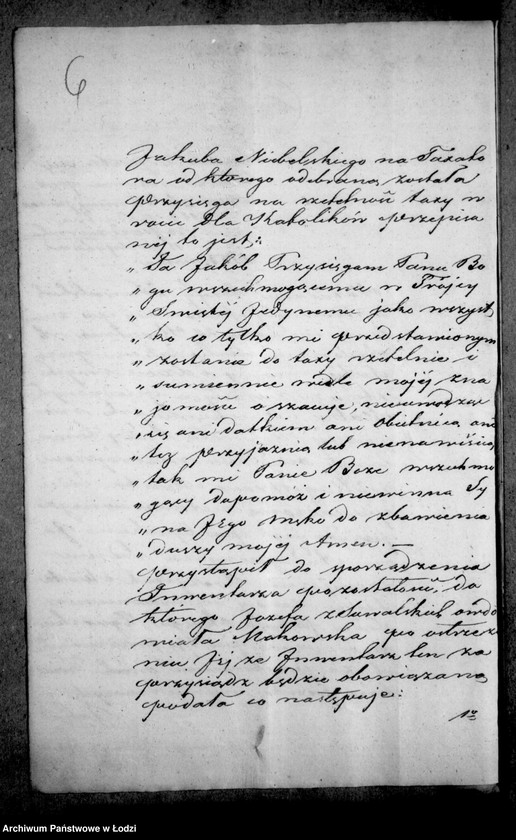 6
Jakuba Niebelskiego na Taxato
ra od którego odebraną została
przysięga na rzetelność taxy w
rocie dla Katolików przepisa
nej to jest:
„ Ja Jakób Przysięgam Panu Bo
„ gu wszechmogącemu w Trójcy
„ Świętej Jedynemu jako wszyst
„ ko co tylko mi przedstawionym
„ zostanie do taxy rzetelnie i
„ sumiennie wedle mojéj zna
„ jomości oszacuję, nieuwodząc
„ się ani datkiem ani obietnicą ani
„ też przyjaźnią lub nienawiścią,
„ tak mi Panie Boże wszechmo
„ gący dopomóż i niewinna Sy
„ na Jego męko do zbawienia
„ duszy mojéj Amen. —
przystąpił do sporządzenia
Inwentarza pozostałości, do
którego Józefa z Suwalskich owdo
wiała Makowska po ostrzeż
niu Jéj że Inwentarz ten za
przysiądz będzie obowiązaną
podała co następuje:
1o
Archiwum Państwowe w Łodzi